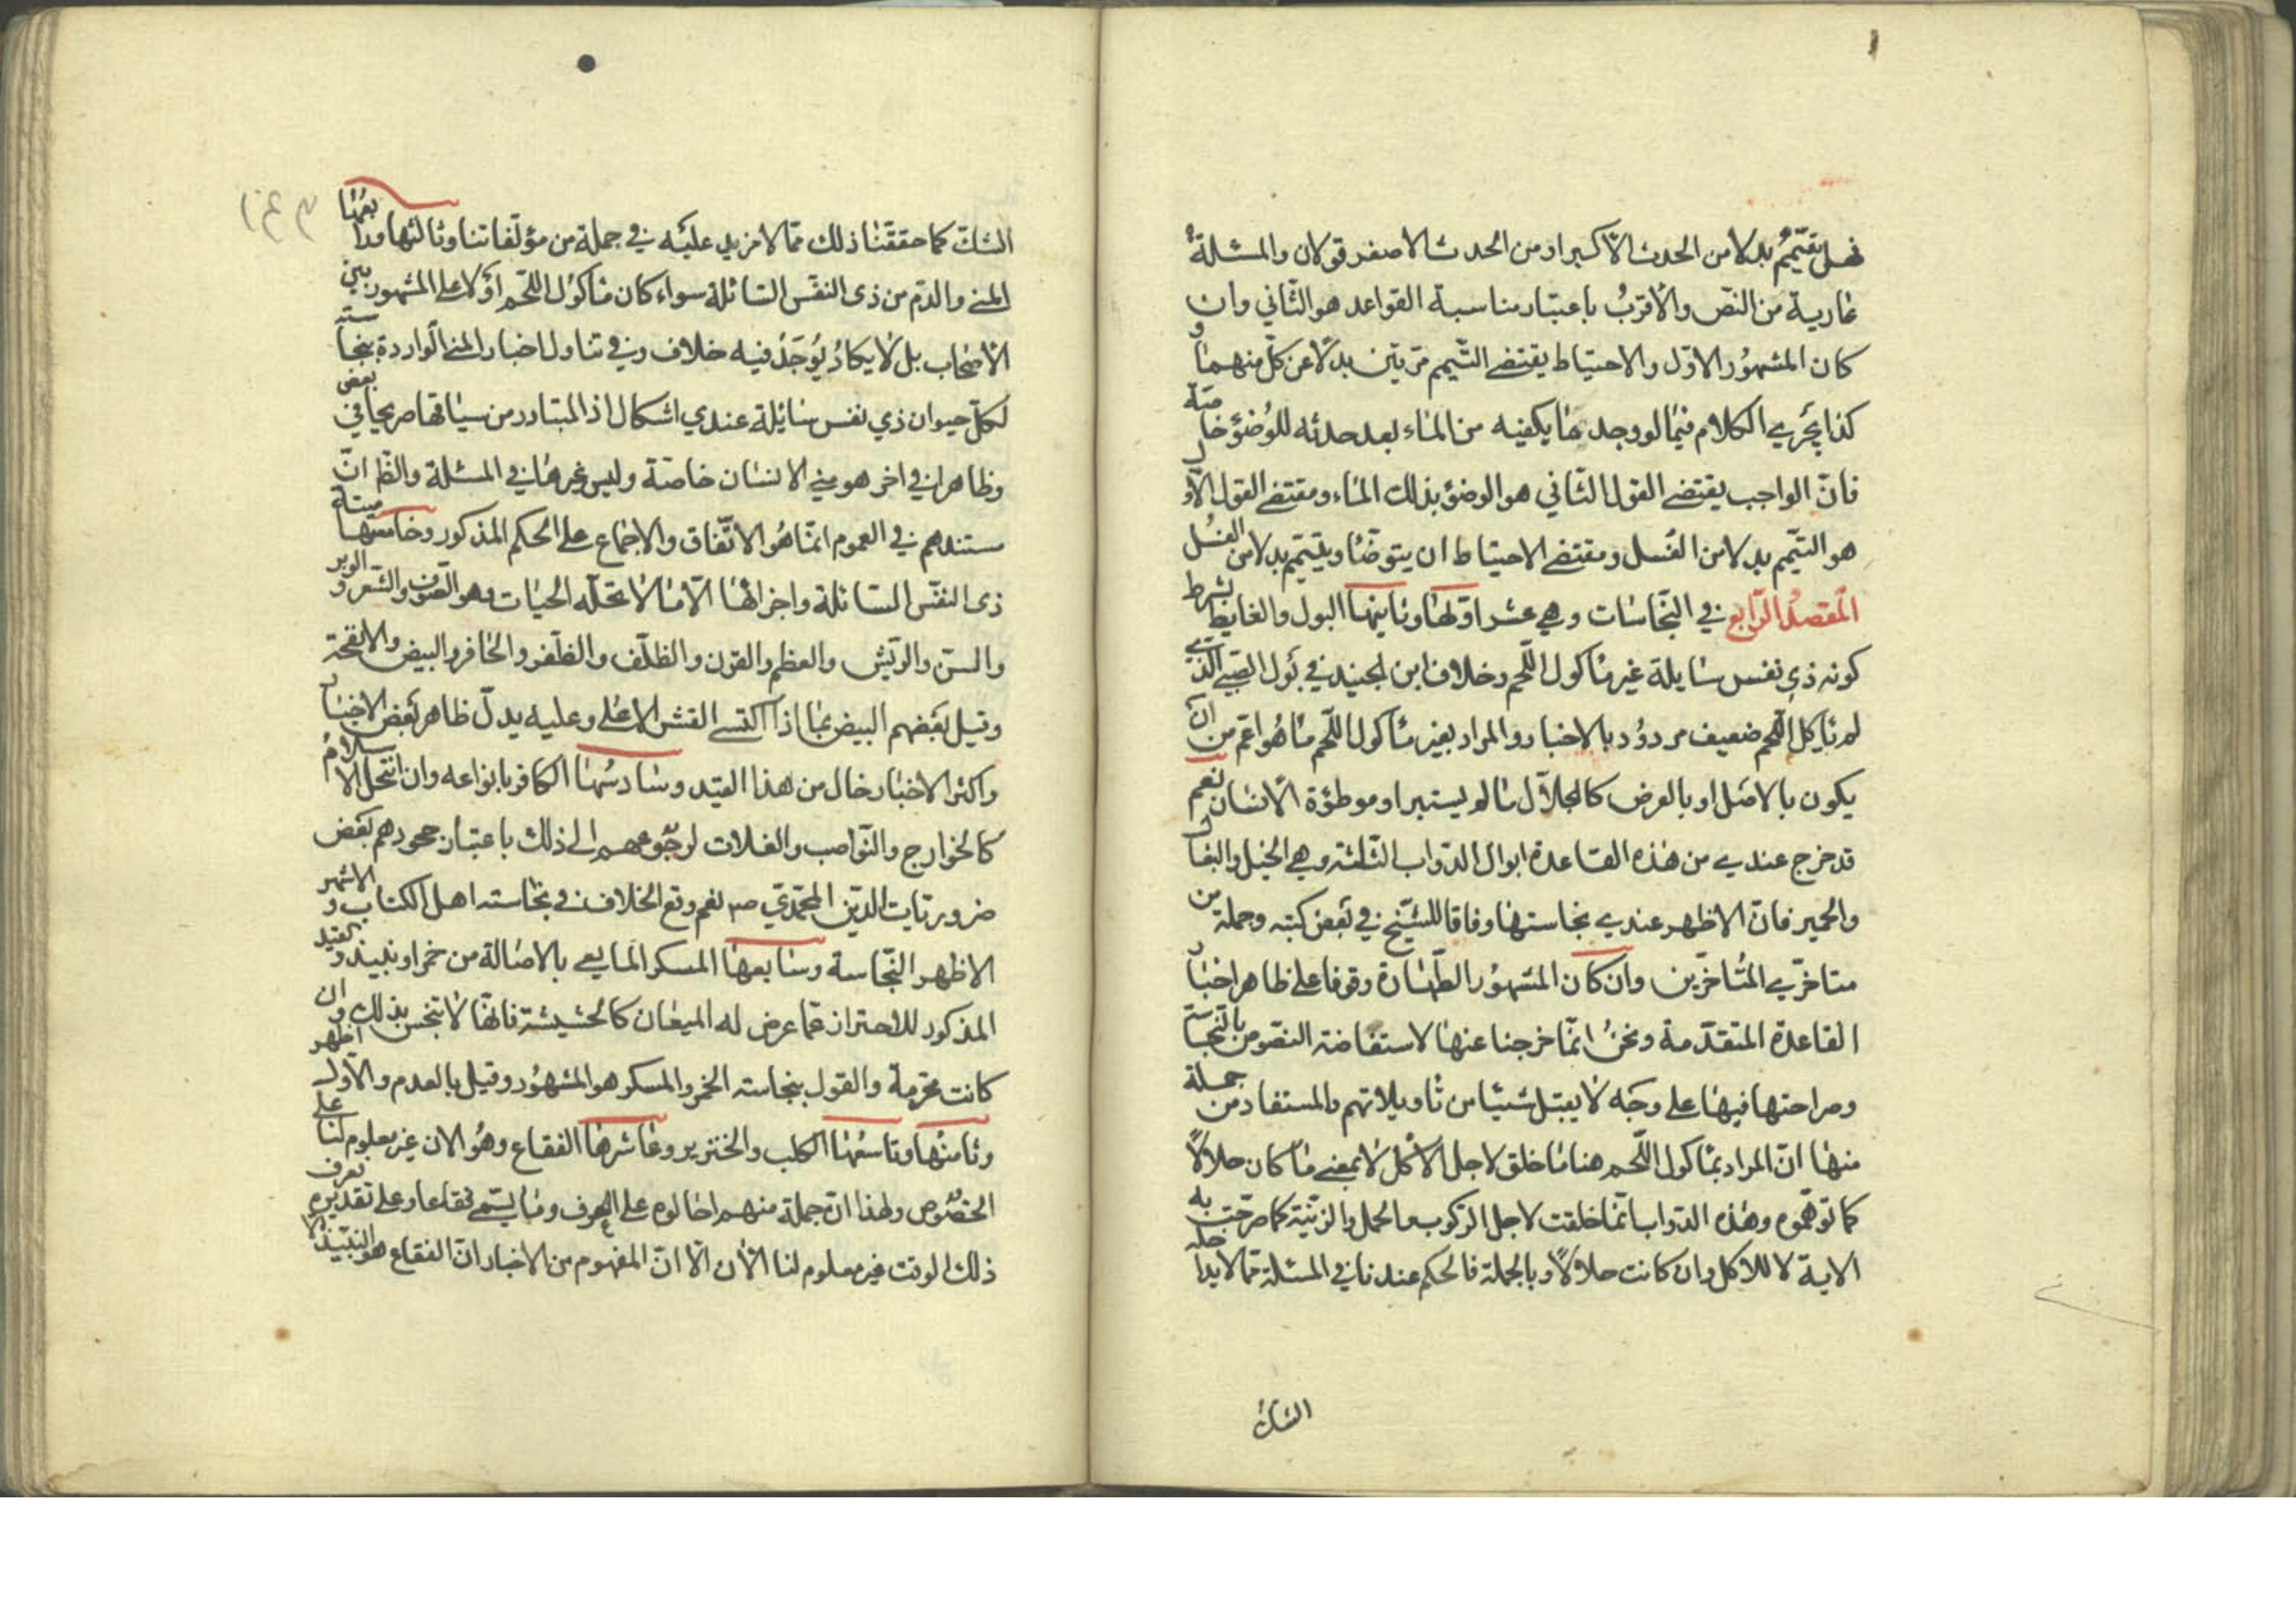 فهل يتيمّم بدلا من الحدث الاكبر او من الحدث الاصغر قولان والمسئلة
عارية من النصّ والاقربُ باعتبار مناسبة القواعد هو الثّاني وان
كان المشهُور الاوّل والاحتياط يقتضي التّيمم مرّتين بدلًا عن كلّ منهما و
كذا يجري الكلام فيما لو وجد ما يكفيه من الماء بعد حدثه للوُضؤ خاصّة
فانّ الواجب بمقتضى القول الثّاني هو الوضؤ بذلك الماء ومقتضى القول الاوّل
هو التيّمم بدلا من الغُسل ومقتضى الاحتياط ان يتوضّأ ويتيمّم بدلا من الغسُل
المقصدُ الرّابع في النّجاسات وهي عشر اوّلها وثانيها البول والغايط بشرط
كونه ذي نفس سايلة غير مأكول اللّحم وخلاف ابن الجنيد في بَول الصّبي الّذي
لم يأكل اللّحم ضعيف مردُود بالاخبار والمراد بغير مأكول اللّحم ما هُو اعمّ من ان
يكون بالاصل او بالعرض كالجلاّل ما لم يستبرا وموطؤة الانسان نعم
قد خرج عندي من هذه القاعدة ابوال الدّواب الثلثة وهي الخيل والبغال
والحمير فانّ الاظهر عندي نجاستها وفاقا للشّيخ في بَعض كتبه وجملة من
متاخّري المتُاخّرين وان كان المشهُور الطّهارة وقوفا على ظاهر اخبار
القاعدة المتقدّمة ونحنُ انّما خرجنا عنها لاستفاضة النصّوص بالنّجاسة
وصراحتها فيها على وجَه لا يقبل شيئًا من تأويلاتهم والمستفاد من جملة
منها انّ المراد بمأكول اللّحم هنا ما خلق لاجل الاكل لا بمعنى ما كان حلالًا
كما توّهموه وهذه الدّواب انّما خلقت لاجل الرّكوب والحمل والزيّنة كما صرّحت به
الاية لا للاكل وان كانت حلالًا وبالجملة فالحكم عندنا في المسئلة ممّا لا يداخله
الشكّ
الشكّ كما حققَنا ذلك ممّا لا مزيد عليَه في جملة من مؤلّفاتنا وثالثها ورابعُها
المني والدّم من ذي النفَس السّائلة سواء كان مأكوُل اللّحم أوَلا على المشهور بين
الاصحاب بل لا يكاد يُوجَدُ فيه خلاف وفي تناول اخبار المني الواردة بنجاسته
لكلّ حيوان ذي نفس سائلة عندي اشكال اذ المتبادر من سياقها صريحا في بعض
وظاهرا في اخر هو مني الانسان خاصّة وليس غيرها في المسئلة والظّ انّ
مستندهم في العموم انمّا هُو الاتّفاق والاجماع على الحكم المذكور وخامسها ميتة
ذي النفّس السّائلة واجزائها الاّ ما لا تحلّه الحيات وهو الصّوف والشّعر والوبر
والسنّ والرّيش والعظم والقرن والظلّف والظّفر والحافر والبيض والانفحة
وقيل بعَضهم البيض بما اذا اكتسى القشر الاعلى وعليه يدلّ ظاهر بَعض الاخبار
واكثر الاخبار خال من هذا القيد وسادسُها الكافر بانواعه وان انتحل الاسلام
كالخوارج والنّواصب والغلات لرجُوعهم الى ذلك باعتبار جحودهم بَعض
ضروريّات الدّين المحمّديّ ص نعم وقع الخلاف في نجاسته اهل الكتاب والاشهر
الاظهر النّجاسة وسابعها المسكر المايع بالاصالة من خمر او نبيذ والقيد
المذكور للاحتراز عمّا عرض له الميعان كالحشيشة فانهّا لا تنجس بذلك وان
كانت محرّمة والقول بنجاسته الخمر والمسكر هو المشهُور وقيل بالعدم والاوّل اظهر
وثامنُها وتاسعُها الكلب والخنزير وعاشرها الفقاع وهُو الان غير معلوم لنا على
الخصُوص ولهذا انّ جملة منهم احالوه على العرف وما يسّمى فقاعا وعلى تقديره تعرف
ذلك الوقت غير معلوم لنا الأن الاّ انّ المفهوم من الاخبار انّ الفقاع هو النبّيذ الا